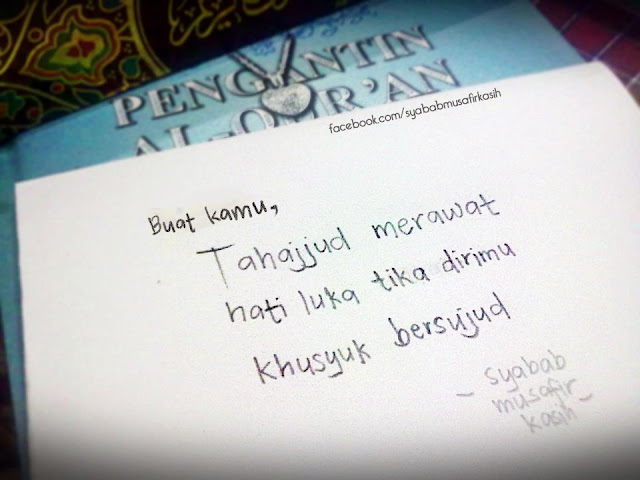 PENGANTIN
AL-QUR'AN
facebook.com/syababmusafirkasih
Buat kamu,
Tahajjud merawat
hati luka tika dirimu
khusyuk bersujud
- syabab
musafir
kasih -